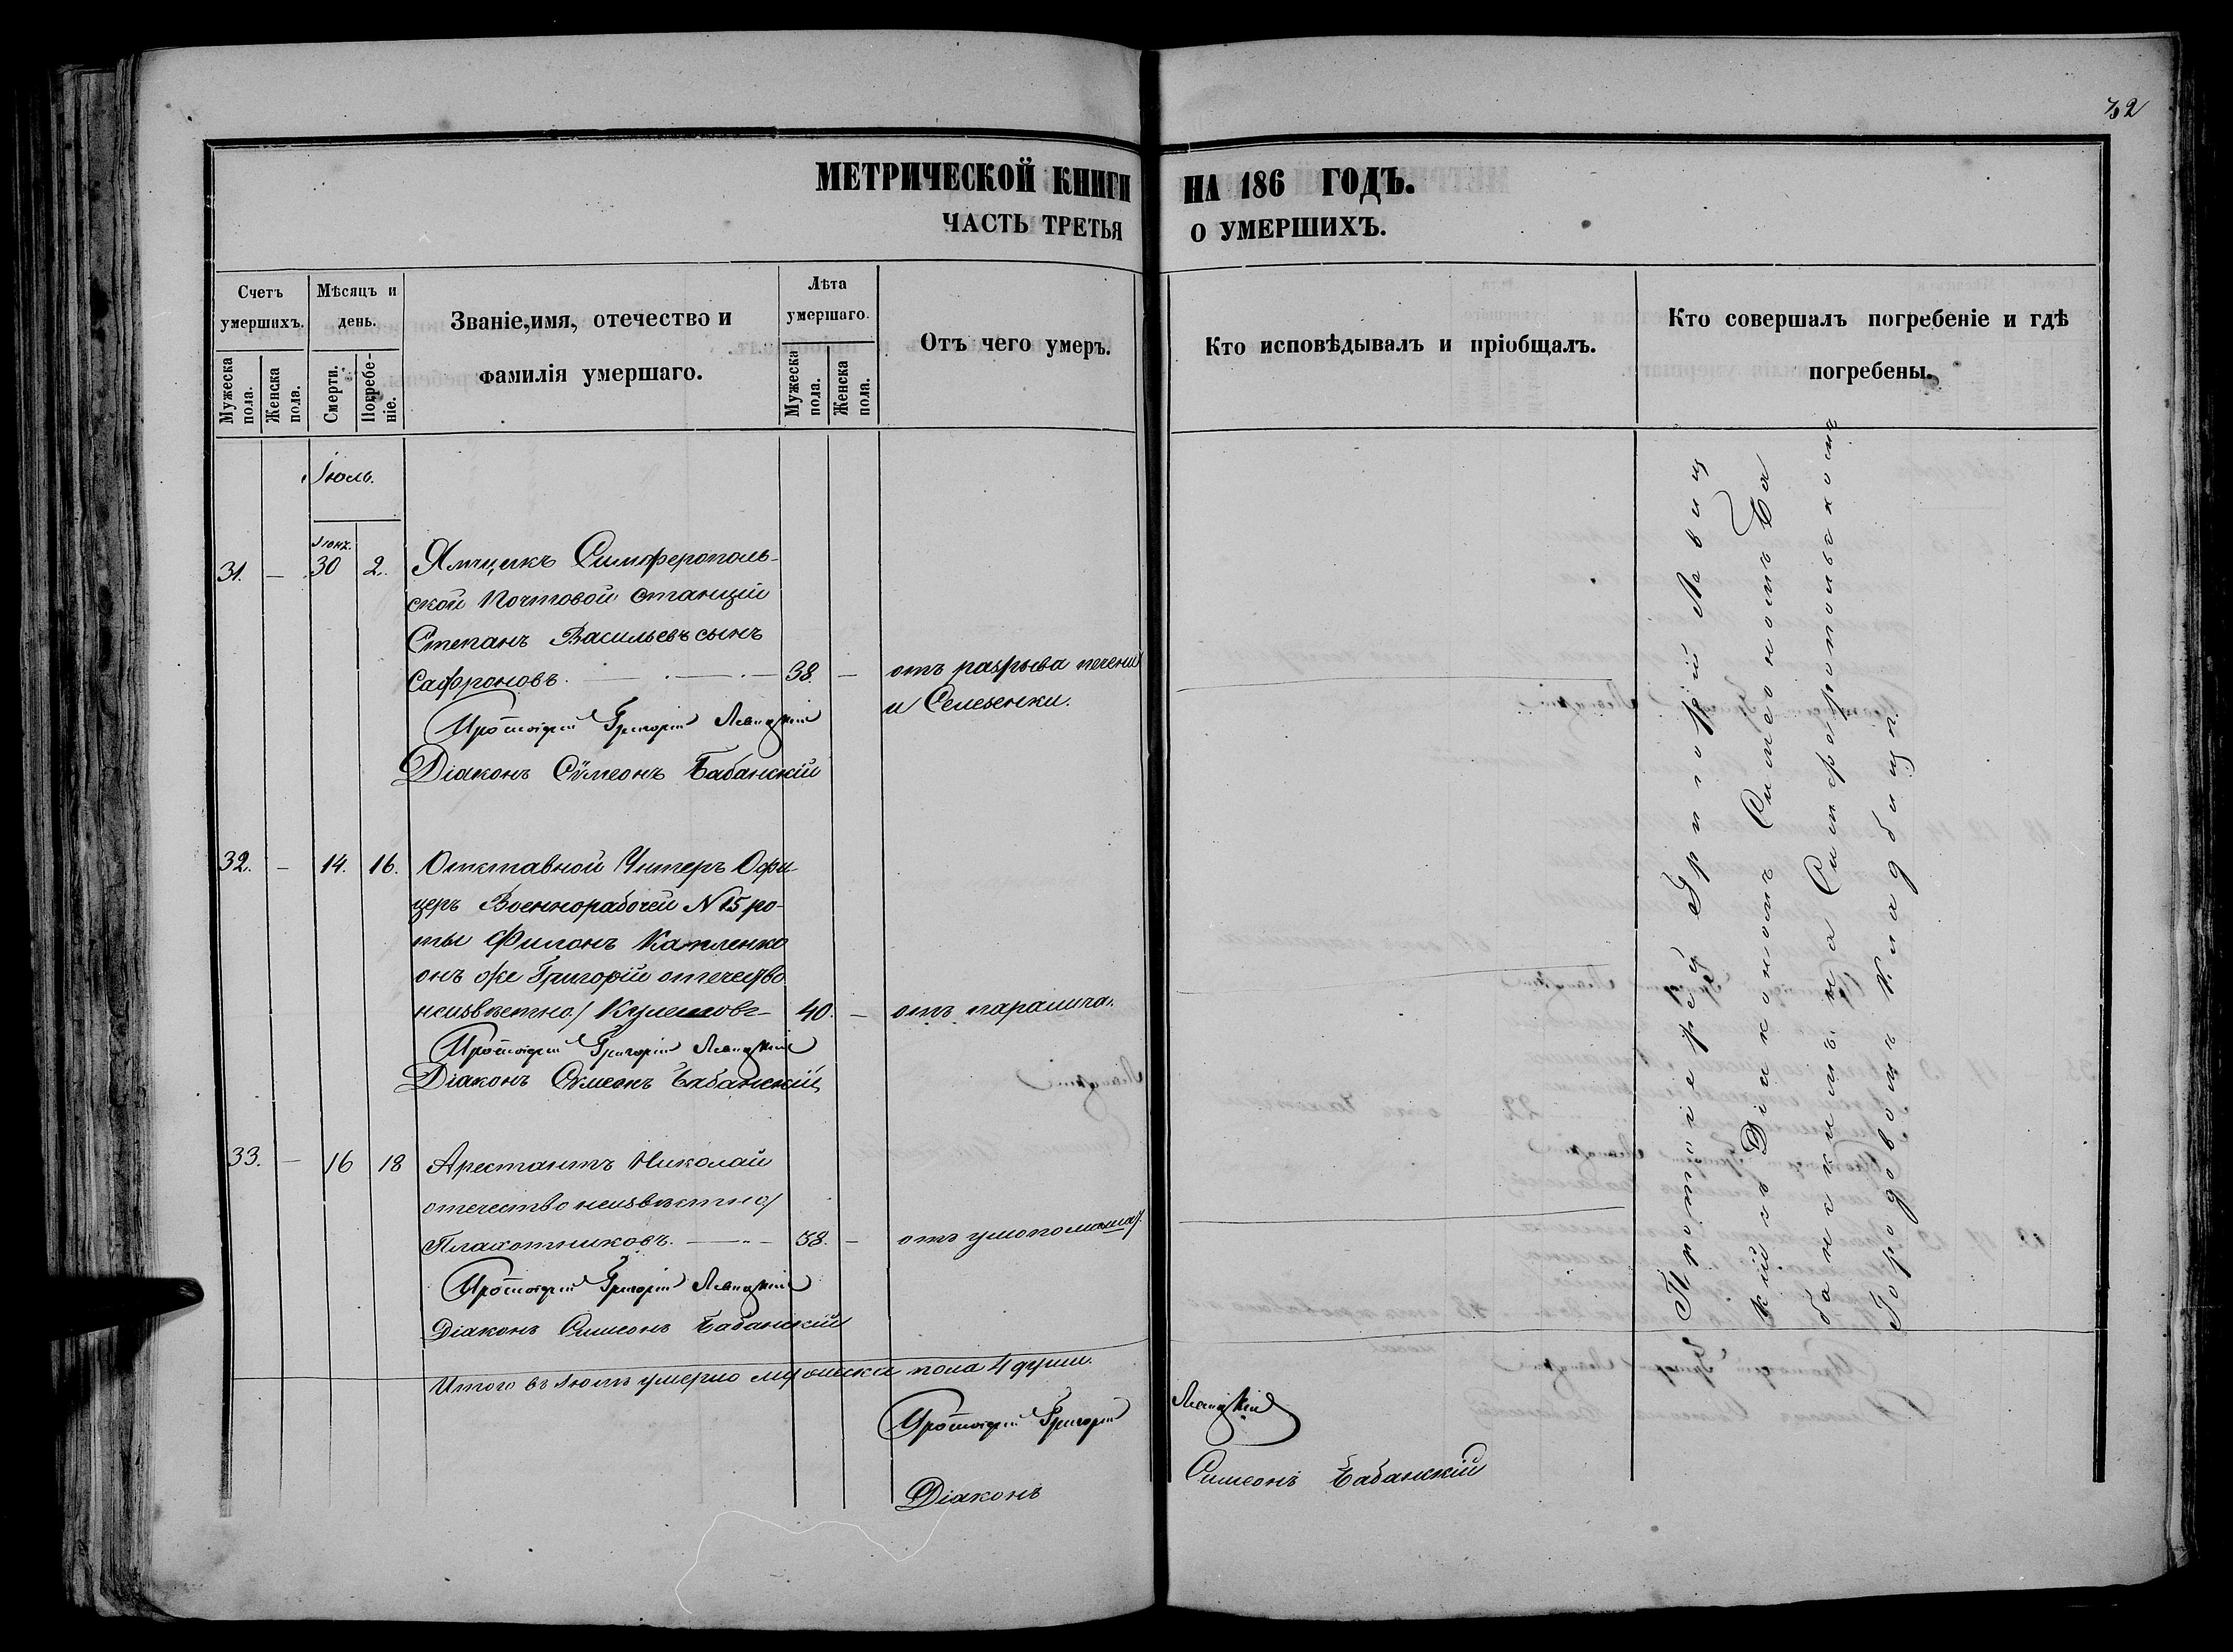 32
МЕТРИЧЕСКОЙ КНИГИ НА 186 ГОДЪ.
ЧАСТЬ ТРЕТЬЯ О УМЕРШИХЪ.
Счетъ умершихъ.
Мужеска пола.
Женска пола.
Мѣсяцъ и день.
Смерти.
Погребеніе.
Званіе,имя, отечество и
фамилія умершаго.
Лѣта умершаго.
Мужеска пола.
Женска пола.
Отъ чего умеръ.
Кто исповѣдывалъ и пріобщалъ.
Кто совершалъ погребеніе и гдѣ
погребены.
Іюль.
Іюня.
31. — 30 2. Ямщикъ Симферополь-
ской Почтовой станціи
Степанъ Васильевъ сынъ
Сафроновъ. 38. — отъ разрыва печени
и Селезенки.
Протоіерей Григорій Левицкій
Діаконъ Сѵмеонъ Бабанскій
32. — 14. 16. Отставной Унтеръ Офи-
церъ Военнорабочей N 15 ро-
ты Филонъ Капленко
онъ же Григорій отечество
неизвѣстно/ Кулешовъ 40. — отъ паралича.
Протоіерей Григорій Левицкій
Діаконъ Сѵмеонъ Бабанскій
33. — 16 18 Арестантъ Николай
отечество неизвѣстно/
Плахотниковъ. 38. — отъ умопомѣша/.
Протоіерей Григорій Левицкій
Діаконъ Симеонъ Бабанскій
Итого въ Іюлѣ умерло мужеска пола 4 души.
Протоіерей Григорій Левицкій
Діаконъ Симеонъ Бабанскій
Протоіерей Григорій Левиц
кій съ Діакономъ Симеономъ Ба
банскимъ на Симферопольскомъ
Городовомъ Кладбищѣ.